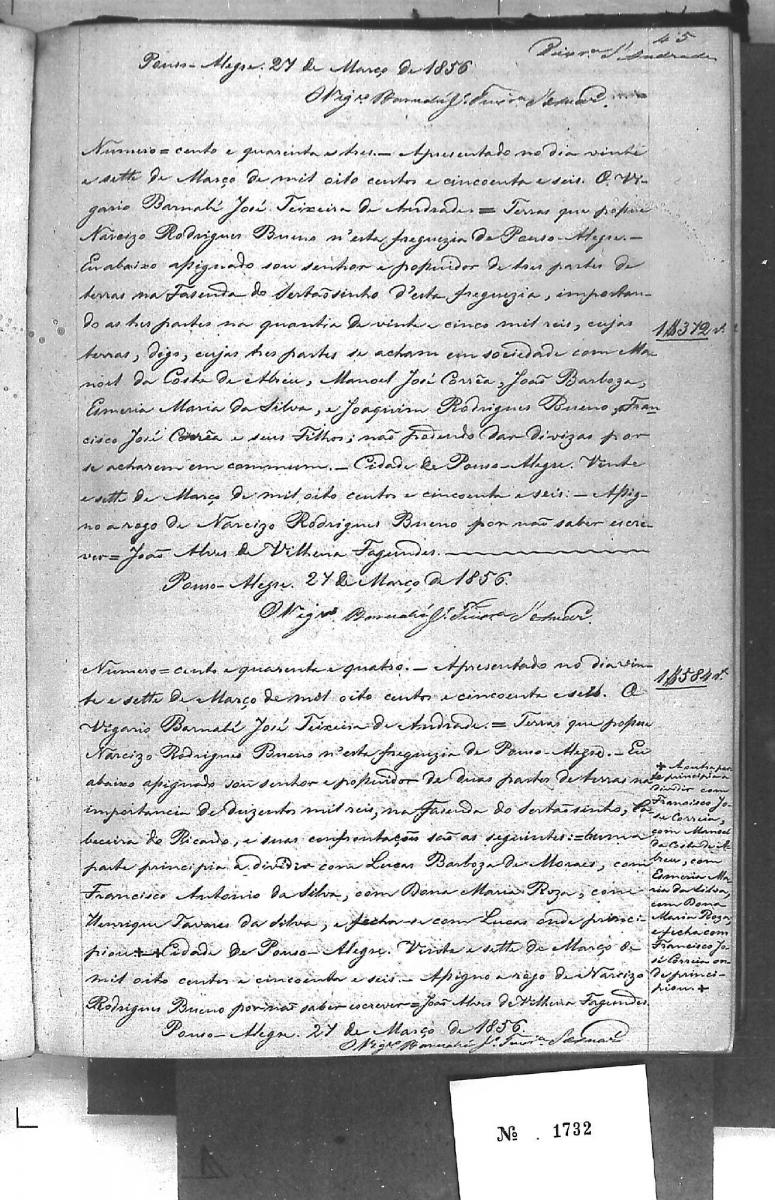 45
Teixra d'Andrade
Pouso-Alegre. 27 de Março de 1856
O Vigro Barnabé Je Teixra d'Andr.
Numero = cento e quarenta e tres. — Apresentado no dia vinte
e sette de Março de mil oito centos e cincoenta e seis. O Vi-
gario Barnabé José Teixeira de Andrade. = Terras que possue
Narcizo Rodrigues Bueno n'esta freguezia de Pouso-Alegre. —
Eu abaixo assignado sou senhor e possuidor de tres partes de
terras na Fasenda do Sertãosinho d'esta freguezia, importan-
do as tres partes na quantia de vinte e cinco mil reis, cujas
terras, digo, cujas tres partes se acham em sociedade com Ma-
noel da Costa de Abreu, Manoel José Corrêa, João Barboza,
Esmeria Maria da Silva, e Joaquim Rodrigues Bueno, Fran-
cisco José Corrêa e seus Filhos; não podendo dar divizas por
se acharem em commum. — Cidade de Pouso-Alegre. Vinte
e sette de Março de mil oito centos e cincoenta e seis. — Assig-
no a rogo de Narcizo Rodrigues Bueno por não saber escre-
ver = João Alves de Vilhena Fagundes.
1$372 rs.
Pouso-Alegre. 27 de Março de 1856.
O Vigro Barnabé Je Teixra d'Andr.
Numero = cento e quarenta e quatro. — Apresentado no dia vin-
te e sette de Março de mil oito centos e cincoenta e seis. O
Vigario Barnabé José Teixeira de Andrade. = Terras que possue
Narcizo Rodrigues Bueno n'esta freguezia de Pouso-Alegre. — Eu
abaixo assignado sou senhor e possuidor de duas partes de terras na
importancia de duzentos mil reis, na Fasenda do Sertãosinho, Ca-
beceira do Ricardo, e suas confrontações são as seguintes: = huma
parte principia a dividir com Lucas Barboza de Moraes, com
Francisco Antonio da Silva, com Dona Maria Roza, com
Henrique Tavares da Silva, e fecha-se com Lucas onde princi-
piou + + Cidade de Pouso-Alegre. Vinte e sette de Março de
mil oito centos e cincoenta e seis. — Assigno a rogo de Narcizo
Rodrigues Bueno por não saber escrever = João Alves de Vilhena Fagundes.
1$584 rs.
+ A outra par-
te principia a
dividir com
Francisco Jo-
sé Correia,
com Manoel
da Costa de A-
breu, com
Esmeria Ma-
ria da Silva,
com Dona
Maria Roza,
e ficha com
Francisco Jo-
sé Correia on-
de princi-
piou. +
Pouso-Alegre. 27 de Março de 1856.
O Vigro Barnabé Je Teixra d'Andr.
№ 1732